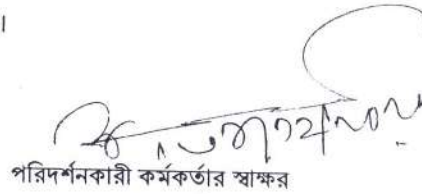 ।
পরিদর্শনকারী কর্মকর্তার স্বাক্ষর